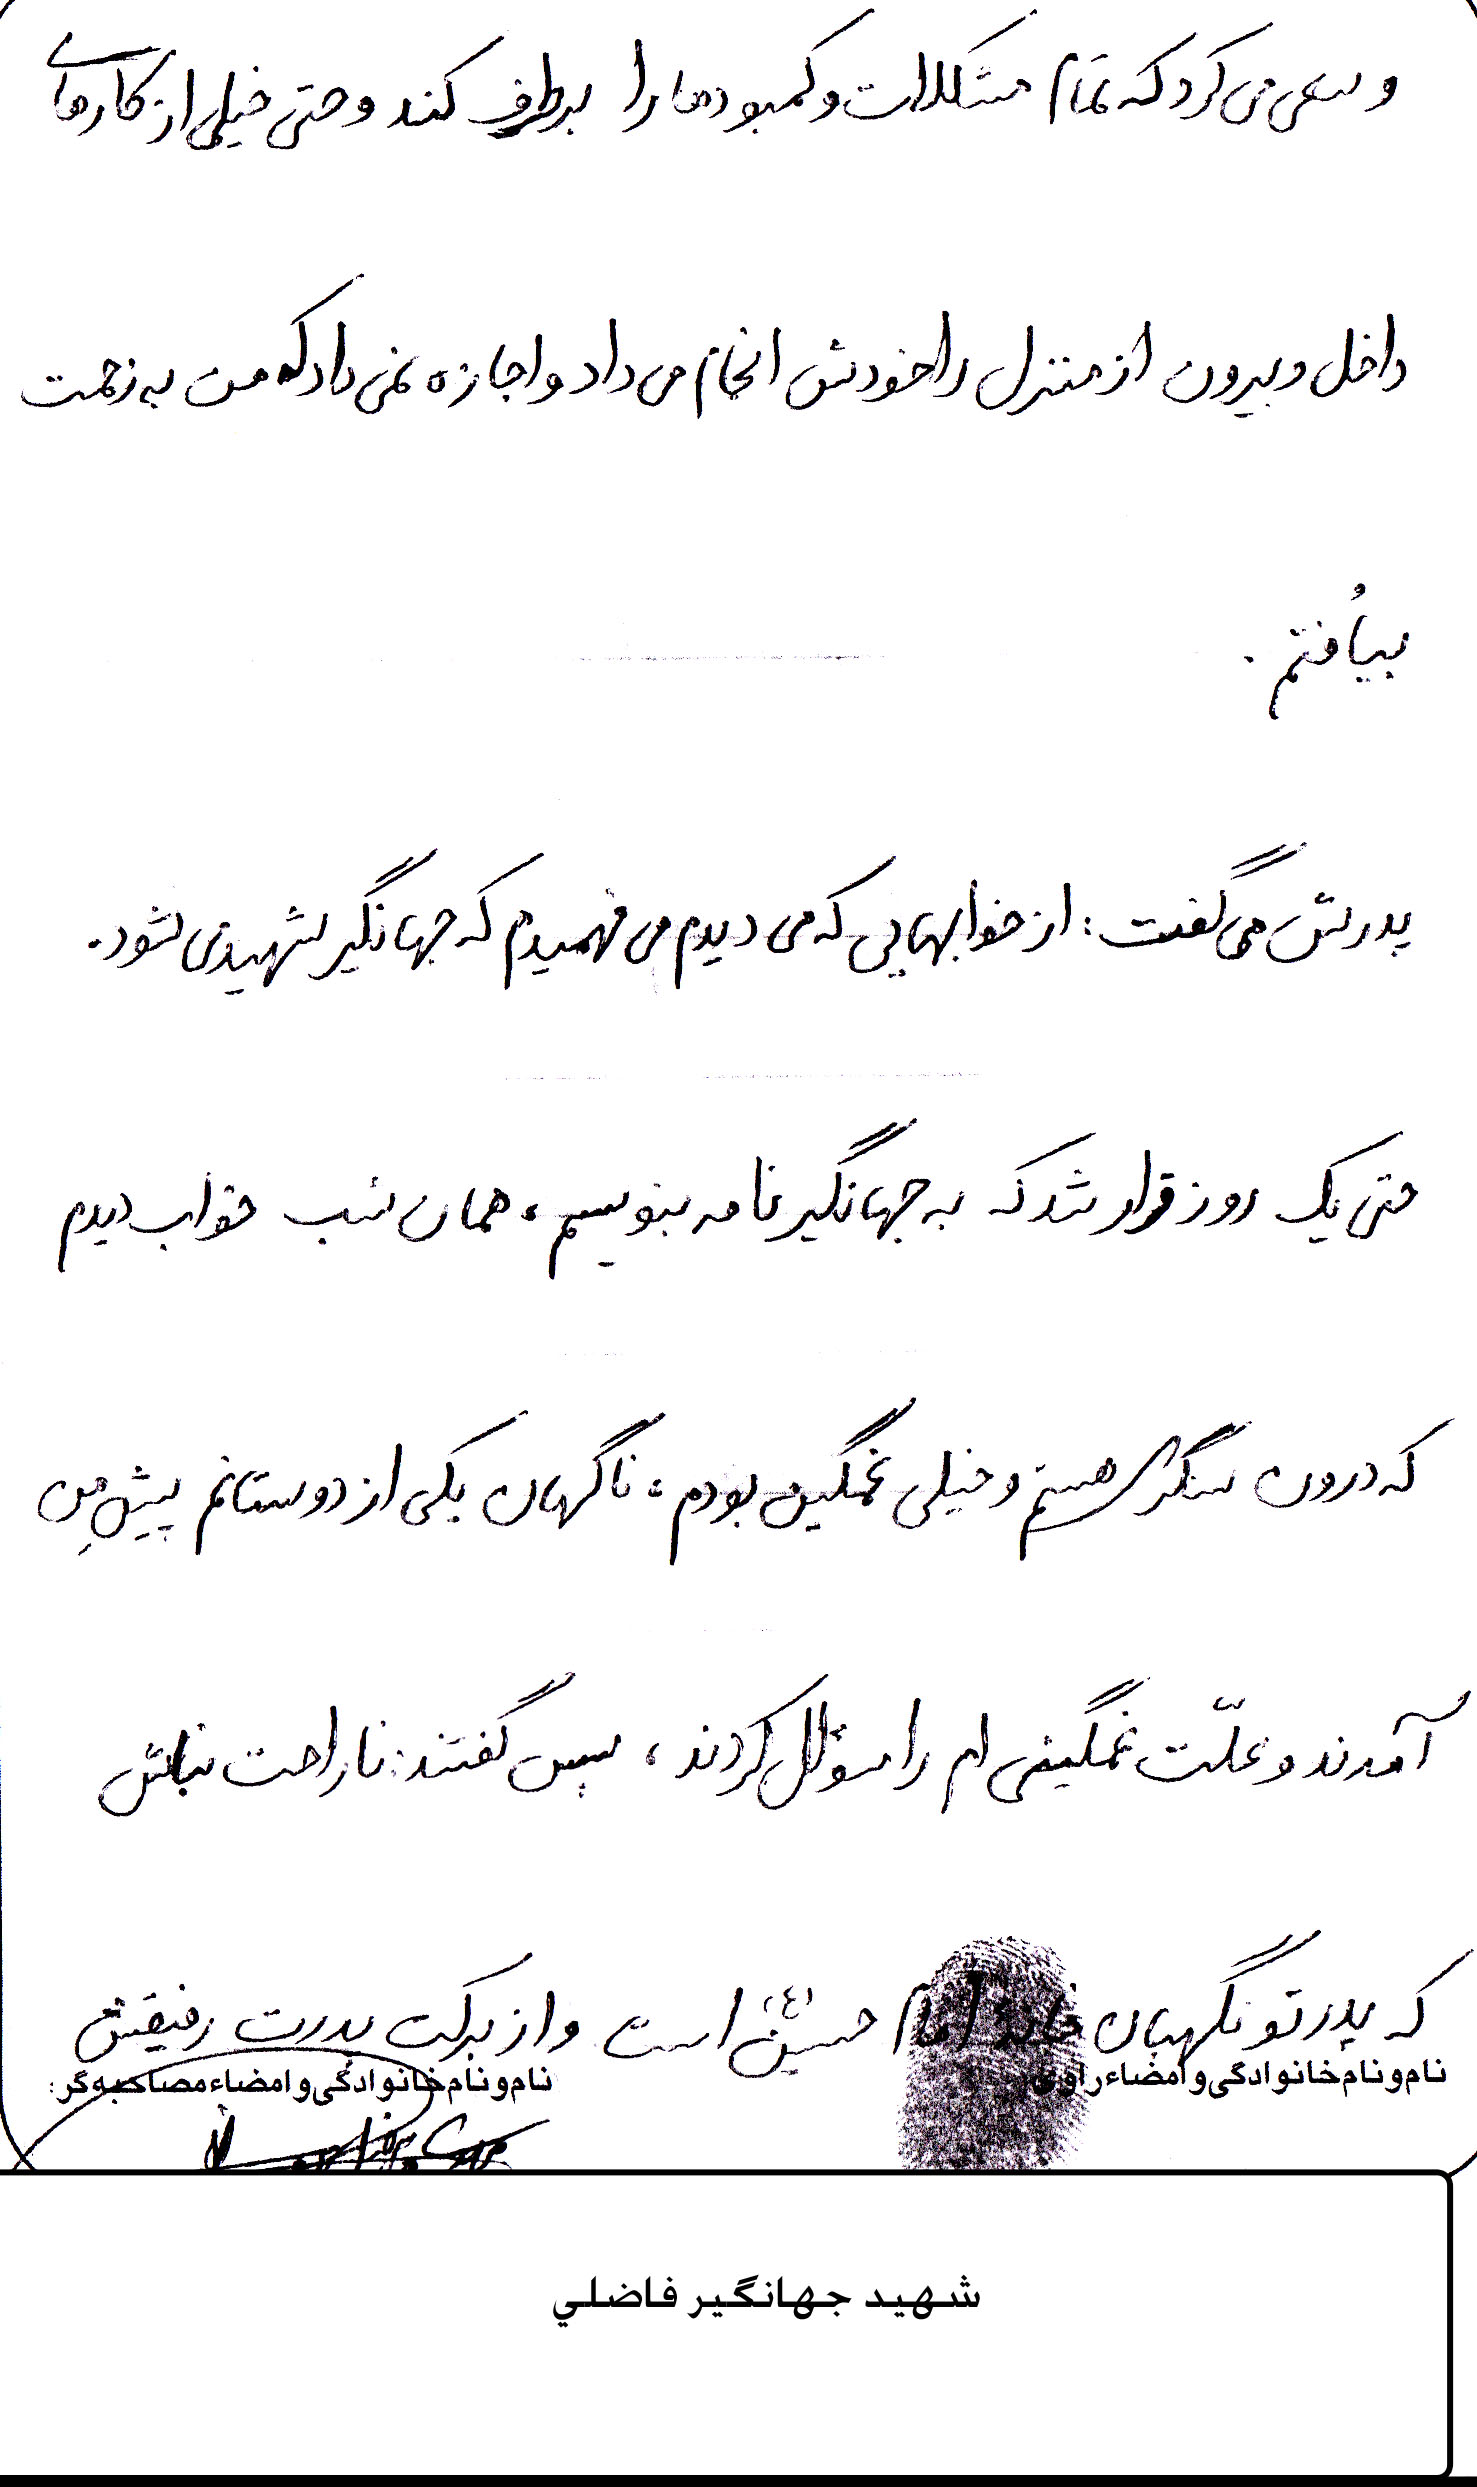 و سعی می کرد که تمام مشکلات و کمبودها را برطرف کند و حتی خیلی از کارهای
داخل و بیرون از منزل را خودش انجام می داد و اجازه نمی داد که من به زحمت
بیاُفتم .
پدرش می گفت : از خوابهایی که می دیدم می فهمیدم که جهانگیر شهید می شود .
حتی یک روز قرار شد که به جهانگیر نامه بنویسم ، همان شب خواب دیدم
که درون سنگر هستم و خیلی غمگین بودم ، ناگهان یکی از دوستانم پیشِ من
آمدند و علّت غمگینی ام را سؤال کردند ، سپس گفتند : ناراحت نباش
که پدر تو نگهبان خانهٔ امام حسین (ع) است و از برکت پدرت رفیقش
نام و نام خانوادگی و امضاء راوی
نام و نام خانوادگی و امضاء مصاحبه گر :
شهيد جهانگير فاضلي